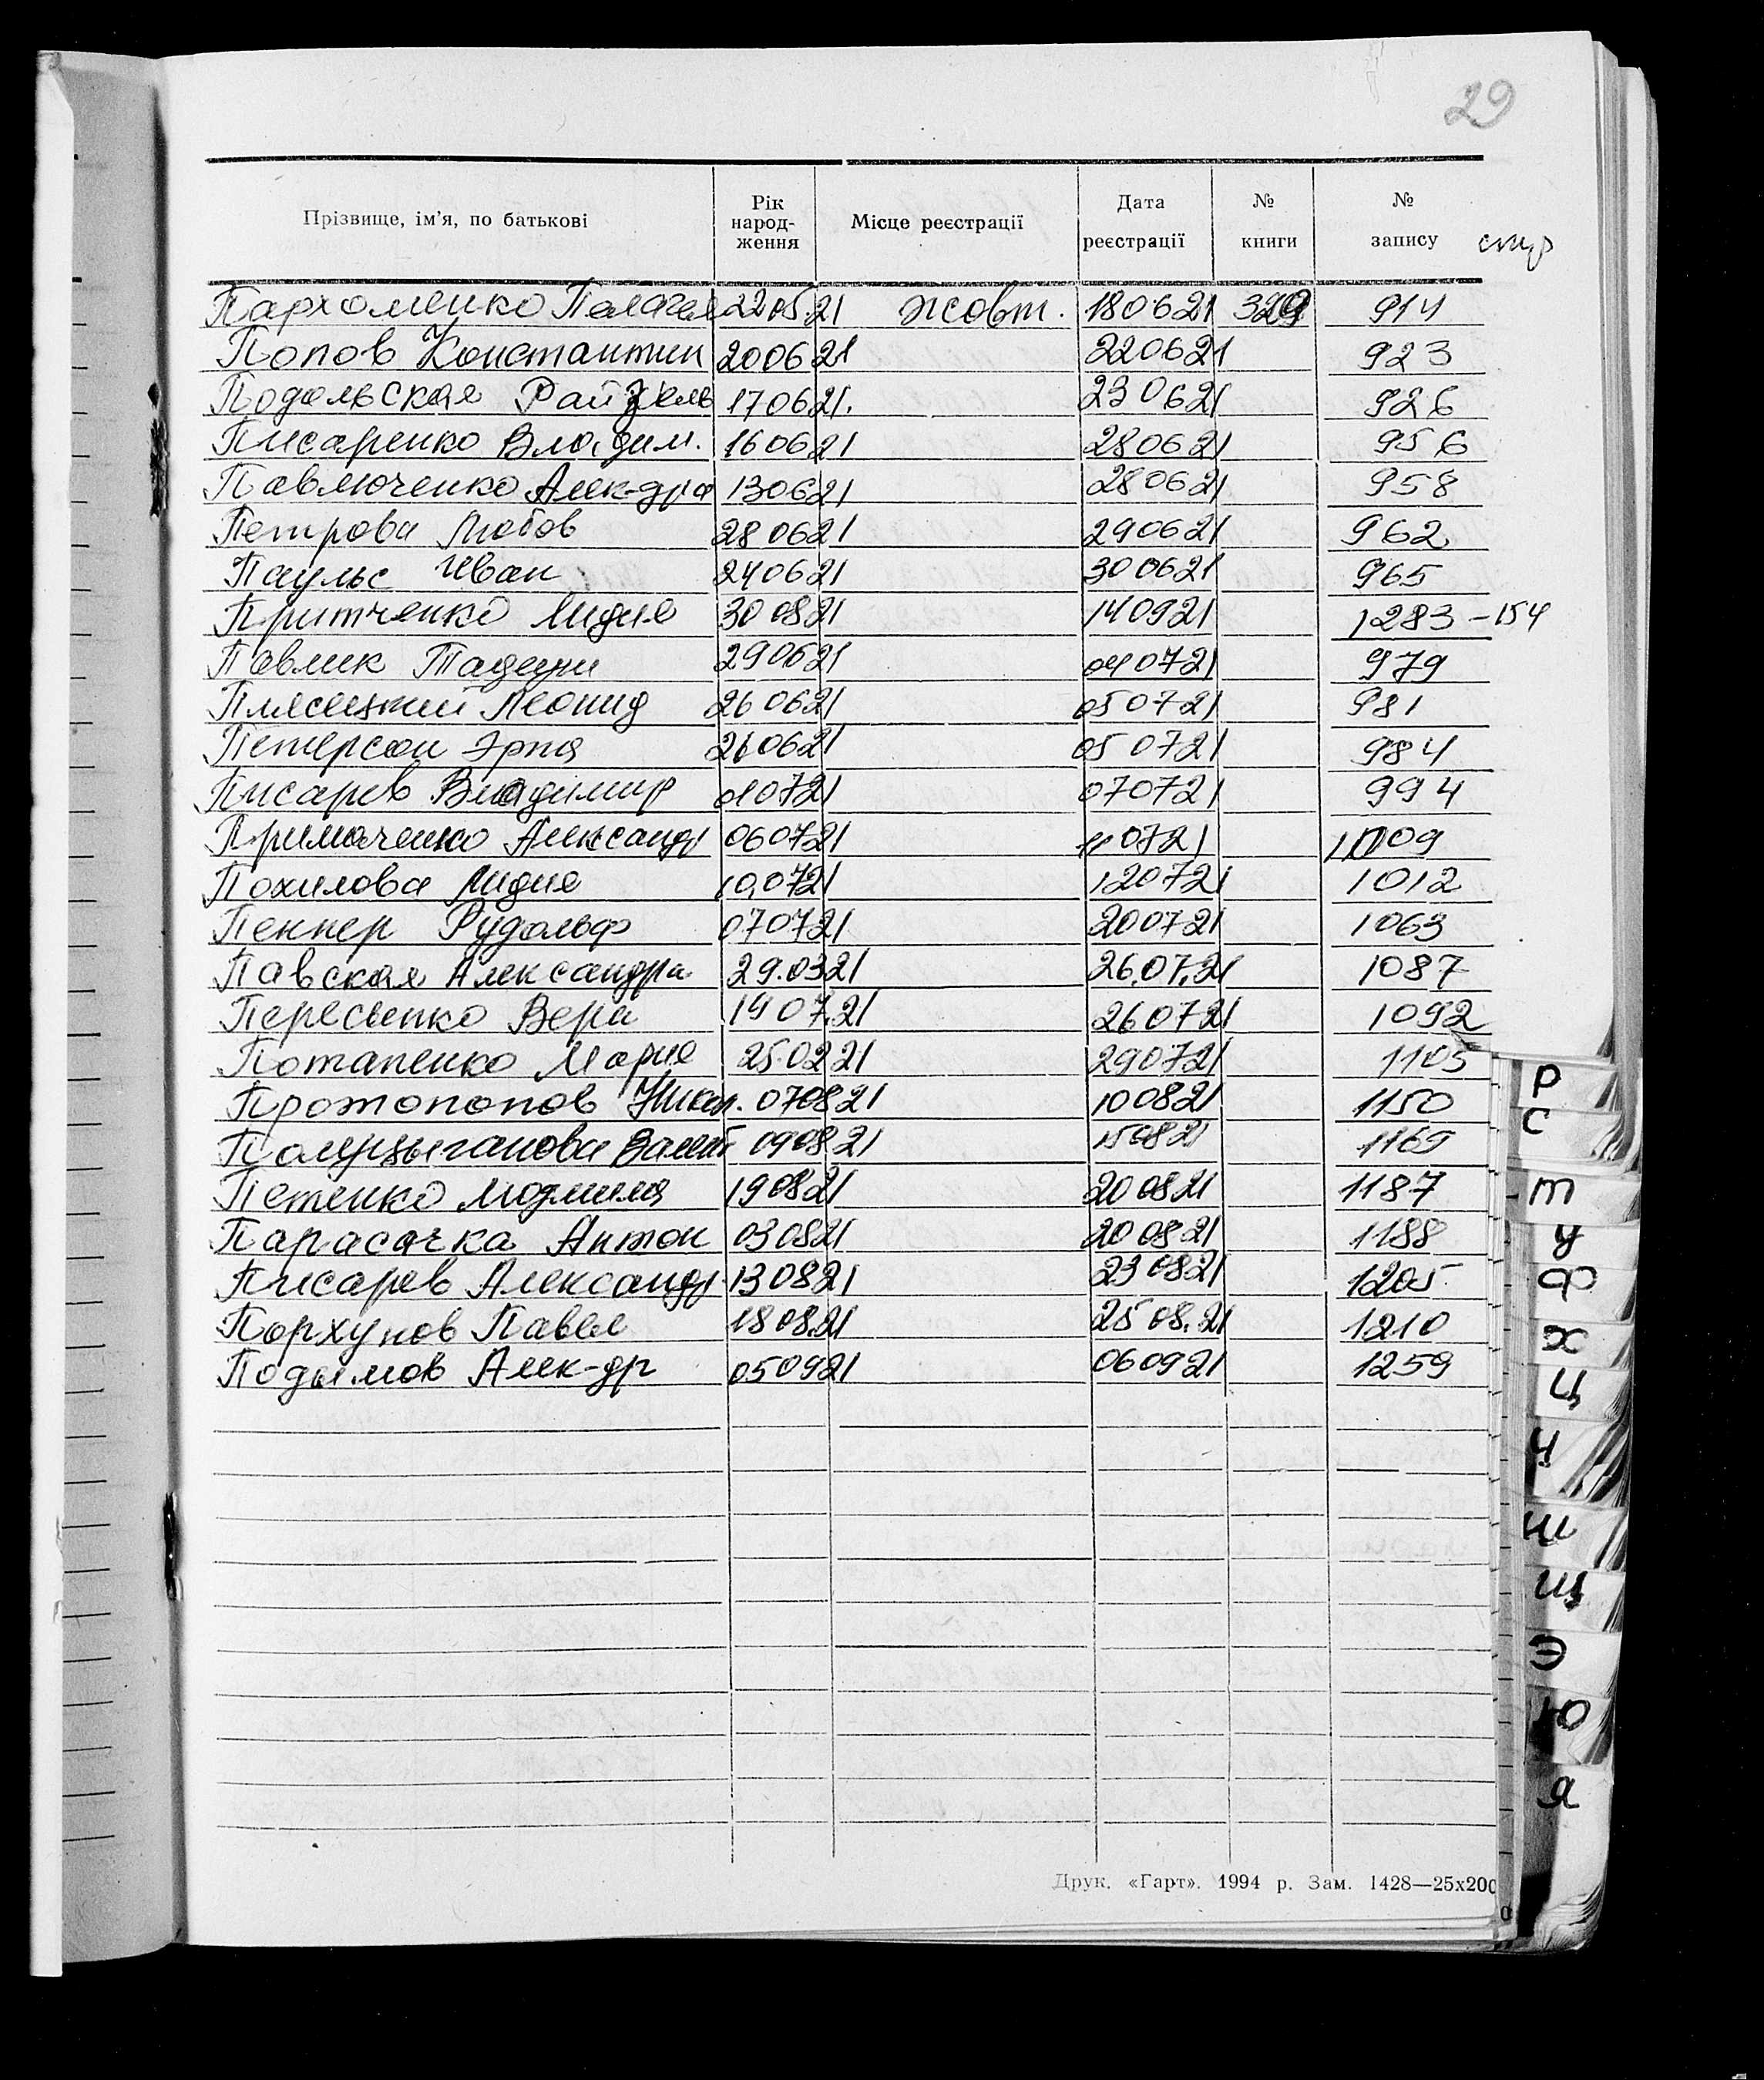 29
Прізвище, ім'я, по батькові Рік народ- ження Місце реєстрації Дата реєстрації № книги № запису стр
Пархоменко Пелагея 22 05.21 жовт. 180621 329 914
Попов Константин 200621 220621 923
Подольская Райзель 170621. 230621 926
Писаренко Владим. 160621 280621 956
Павлюченко Алек-дра 130621 280621 958
Петрова Любов 280621 290621 962
Паульс Иван 240621 300621 965
Притченко Лидия 300821 140921 1283 - 154
Павлик Тадеуш 290621 040721 979
Плясецкий Леонид 260621 050721 981
Петерсон Эрна 260621 050721 984
Писарев Владимир 010721 070721 994
Примаченко Александр 060721 110721 1009
Похилова Лидия 10.0721 120721 1012
Пеннер Рудольф 070721 200721 1063
Павская Александра 29.0321 26.07.21 1087
Пересыпко Вера 1907.21 260721 1092
Потапенко Мария 25.0221 290721 1105
Протопопов Никол. 070821 100821 1150
Полуцыганова Валент 090821 150821 1165
Петенко Людмила 190821 200821 1187
Парасочка Антон 030821 200821 1188
Писарев Александр 130821 230821 1205
Порхунов Павел 1808.21 2508.21 1210
Подымов Алек-др 050921 060921 1259
Р
С
т
у
ф
х
ц
ч
ш
щ
э
ю
я
Друк. «Гарт». 1994 р. Зам. 1428—25х200